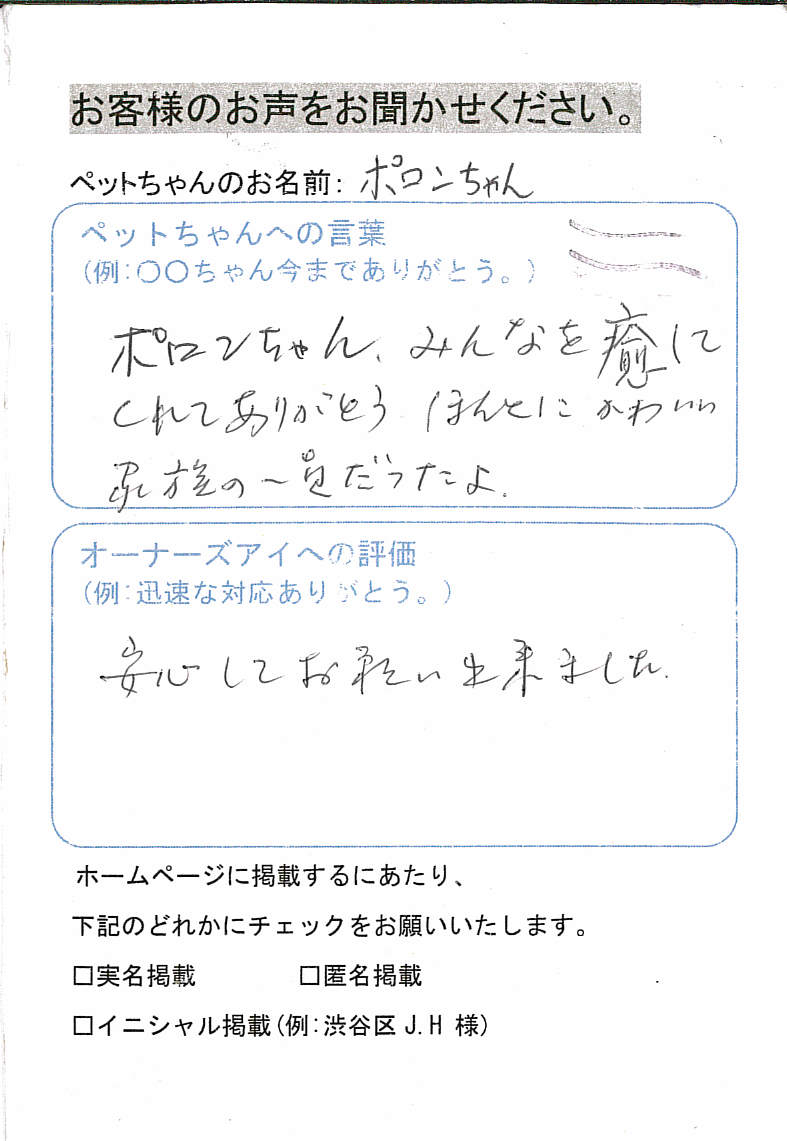 お客様のお声をお聞かせください。
ペットちゃんのお名前: ポロンちゃん
ペットちゃんへの言葉
(例:〇〇ちゃん今までありがとう。)
ポロンちゃん、みんなを癒して
くれてありがとう ほんとにかわいい
家族の一員だったよ.
オーナーズアイへの評価
(例:迅速な対応ありがとう。)
安心してお願い出来ました.
ホームページに掲載するにあたり、
下記のどれかにチェックをお願いいたします。
□実名掲載 □匿名掲載
□イニシャル掲載(例:渋谷区 J.H 様)